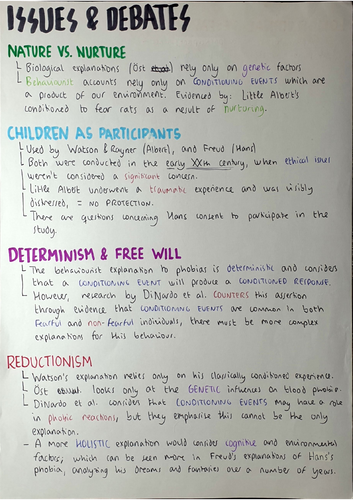 ISSUES & DEBATES
NATURE VS. NURTURE
Biological explanations (Öst) rely only on genetic factors
Behaviourist accounts rely only on CONDITIONING EVENTS which are
a product of our environment. Evidenced by: Little Albert's
conditioned to fear rats as a result of nurturing.
CHILDREN AS PARTICIPANTS
Used by Watson & Rayner (Albert), and Freud (Hans)
Both were conducted in the early XXth century, when ethical issues
weren't considered a significant concern.
Little Albert underwent a traumatic experience and was visibly
distressed, = NO PROTECTION.
There are questions concerning Hans consent to participate in the
study.
DETERMINISM & FREE WILL
The behaviourist explanation to phobias is deterministic and considers
that a CONDITIONING EVENT will produce a CONDITIONED RESPONSE.
However, research by DiNardo et al. COUNTERS this assertion
through evidence that CONDITIONING EVENTS are common in both
fearful and non-fearful individuals, there must be more complex
explanations for this behaviour.
REDUCTIONISM
Watson's explanation relies only on his classically conditioned experience.
Öst looks only at the GENETIC influences on blood phobia.
DiNardo et al. consider that CONDITIONING EVENTS may have a role
in phobic reactions, but they emphasise this cannot be the only
explanation.
- A more HOLISTIC explanation would consider cognitive and environmental
factors, which can be seen more in Freud's explanations of Hans's
phobia, analysing his dreams and fantasies over a number of years.